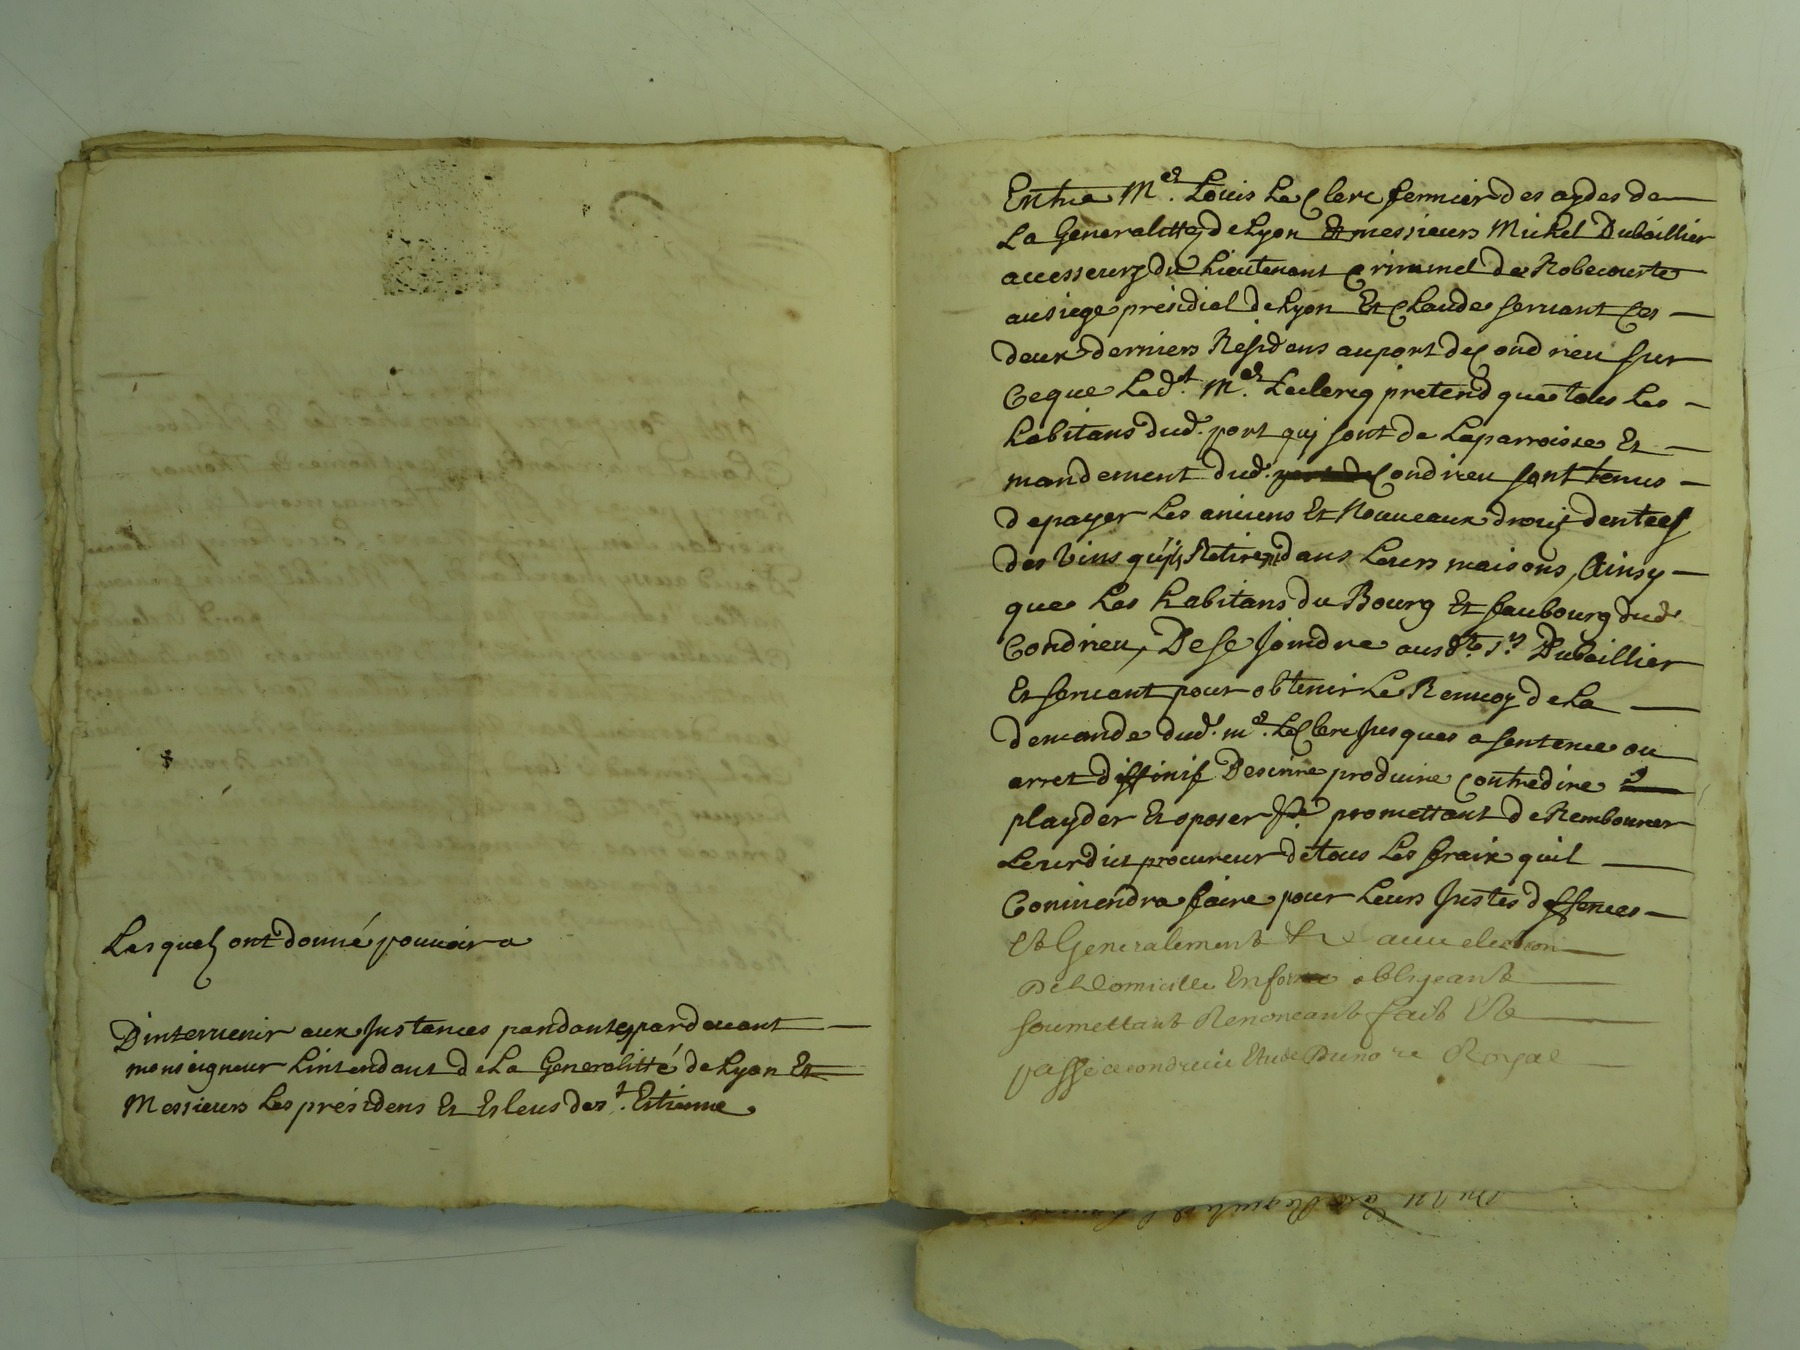 Lesquelz ont donné pouvoir a
Dintervenir aux Instances pandantes pardevant
monseigneur Lintendant de La Generalitté de Lyon Et
Messieurs Les présidens Et Esleus de st. Estienne
Entre Me. Louis Le Clerc fermier des aydes de
La Generalitté de Lyon Et messieurs Michel Dubaillier
accesseurs du Lieutenant Criminel de Robecourte
au siege présidiel de Lyon Et Claude servant Ces
deux derniers Residens au port de Condrieu sur
Ce que Ledt. Me. Leclercq pretend que tous Les
habitans dud. port qui sont de Laparroisse Et
mandement dud. Condrieu sont tenus
de payer Les anciens Et Nouveaux droits dentees
des Vins qu'ils Retirent dans Leurs maisons, Ainsy
que Les habitans du Bourg Et faubourg dud.
Condrieu, De se Joindre ausdts. srs. Dubaillier
Et servant pour obtenir Le Renvoy de La
demande dud. me. LeClerc Jusques a sentence ou
arret diffinif Descrire produire Contredire
playder Et oposer promettant de Rembourcer
Leurdict procureur de tous Les fraix quil
Conviendra faire pour Leurs Justes deffences
Et Generalement &c avec election
De Domicille En forme obligeant
soumettant Renonceant fait Et
passé a condrieu Etude Du no.re Royal